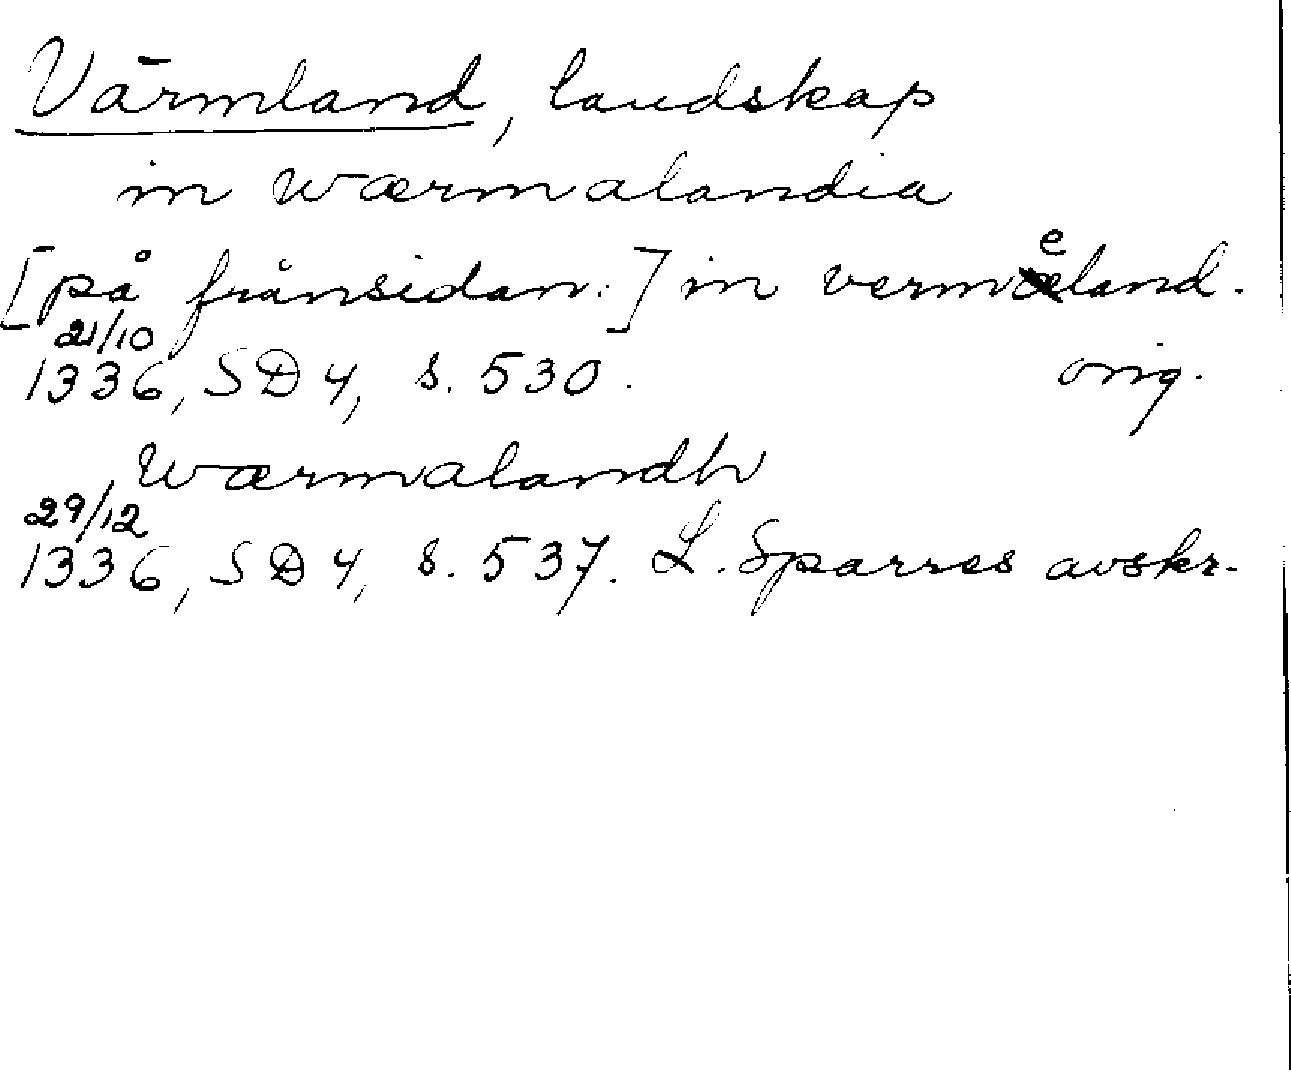 Värmland, landskap
in wærmalandia
[på frånsidan:] in vermeland.
21/10
1336, SD 4, s. 530. orig.
wærmalandh
29/12
1336, SD 4, s. 537. L. Sparres avskr.